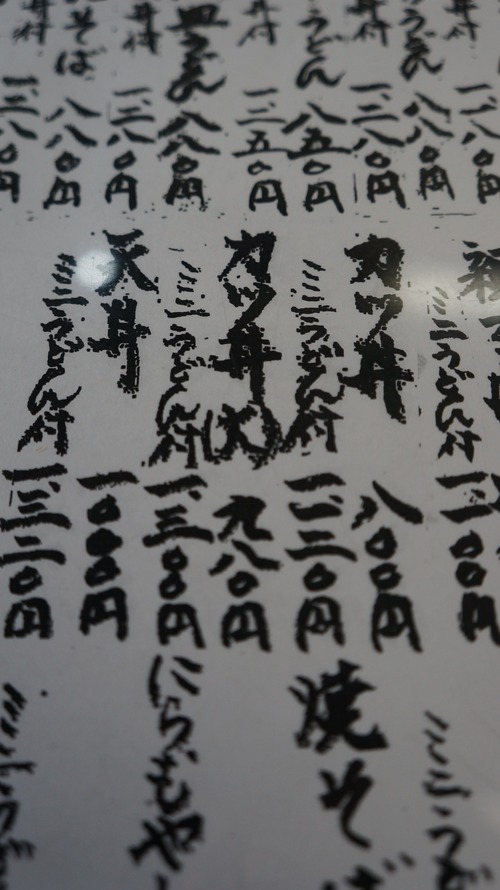 丼付 一、三八〇円
うどん 八八〇円
丼付 一、三八〇円
うどん 八五〇円
丼付 一、三五〇円
皿うどん 八八〇円
丼付 一、三八〇円
そば 八八〇円
丼付 一、三八〇円
ミニうどん付 一、一〇〇円
カツ丼 八〇〇円
ミニうどん付 一、一二〇円
カツ丼(大) 九八〇円
ミニうどん付 一、三〇〇円
天丼 一〇〇〇円
ミニうどん付 一、三二〇円
ミニう
焼そば
にらもや
ミニうど